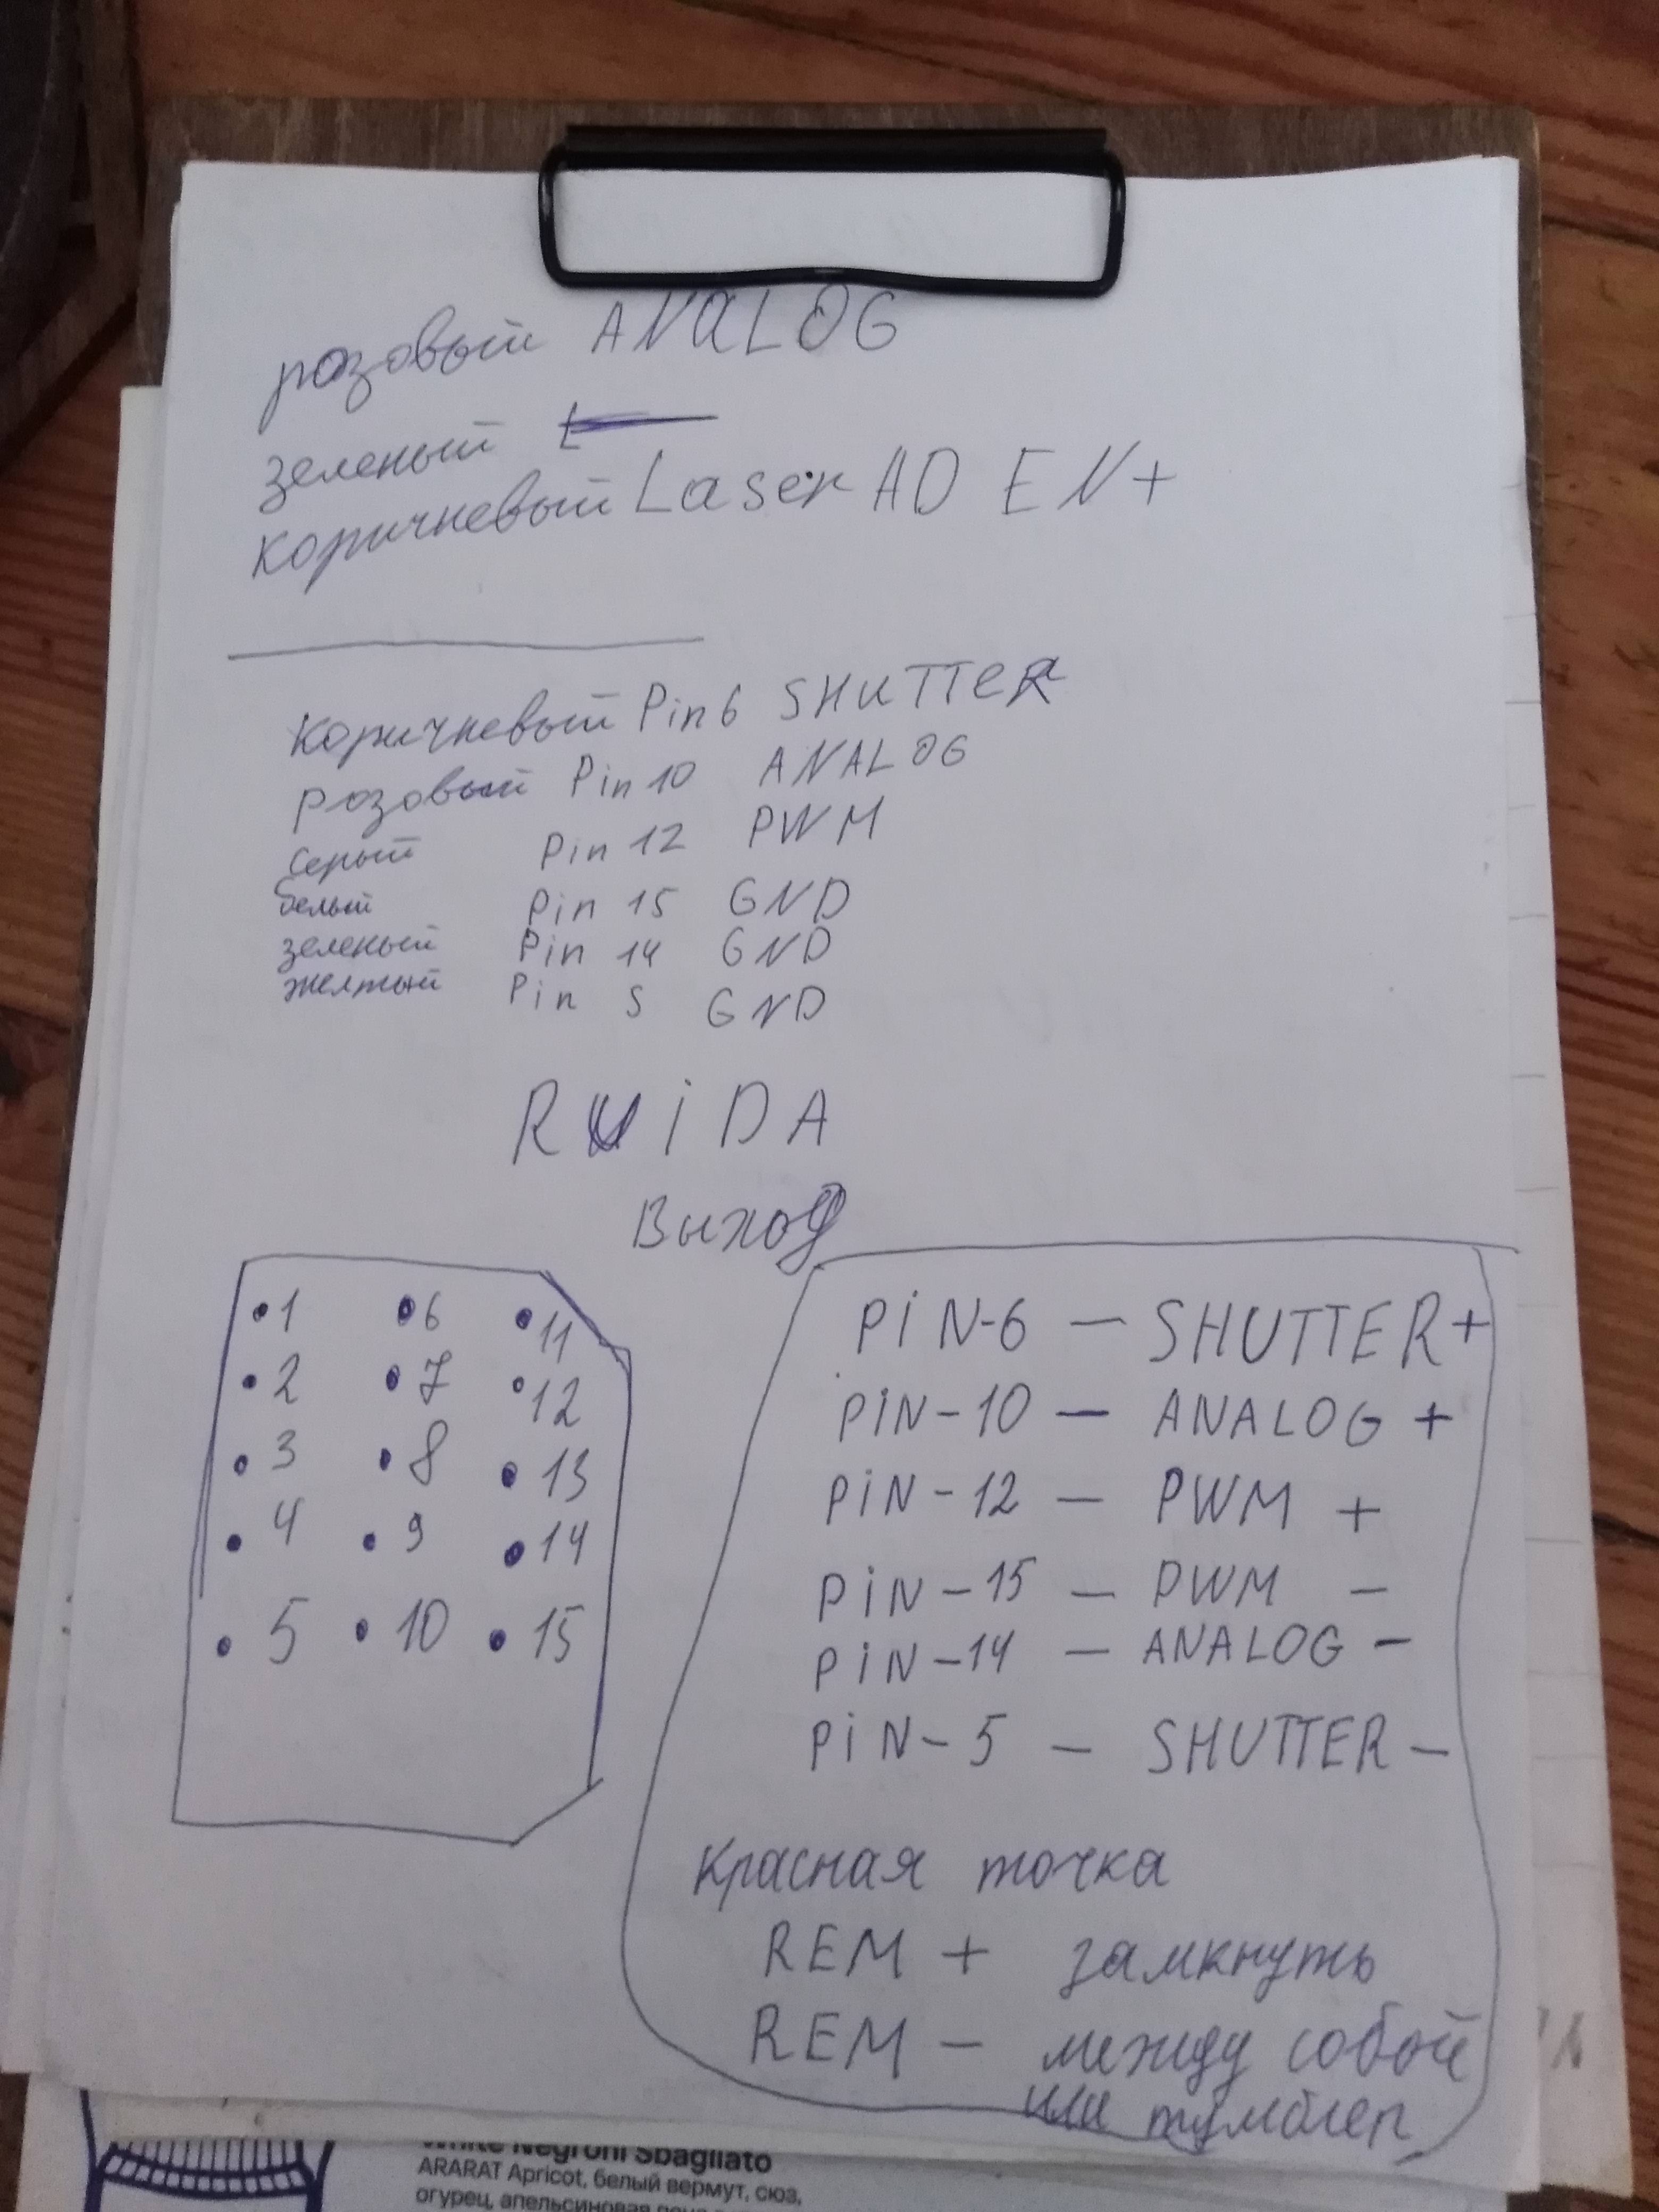 розовый ANALOG
зеленый
коричневый Laser AD EN+
коричневый Pin 6 SHUTTER
розовый Pin 10 ANALOG
серый Pin 12 PWM
белый Pin 15 GND
зеленый Pin 14 GND
желтый Pin 5 GND
RUiDA
Выход
1 6 11
2 7 12
3 8 13
4 9 14
5 10 15
PiN-6 — SHUTTER+
PiN-10 — ANALOG +
PiN-12 — PWM +
PiN-15 — PWM -
PiN-14 — ANALOG -
PiN-5 — SHUTTER -
Красная точка
REM + замкнуть
REM - между собой
или тумблер
White Negroni Sbagliato
ARARAT Apricot, белый вермут, сюз,
огурец, апельсиновая